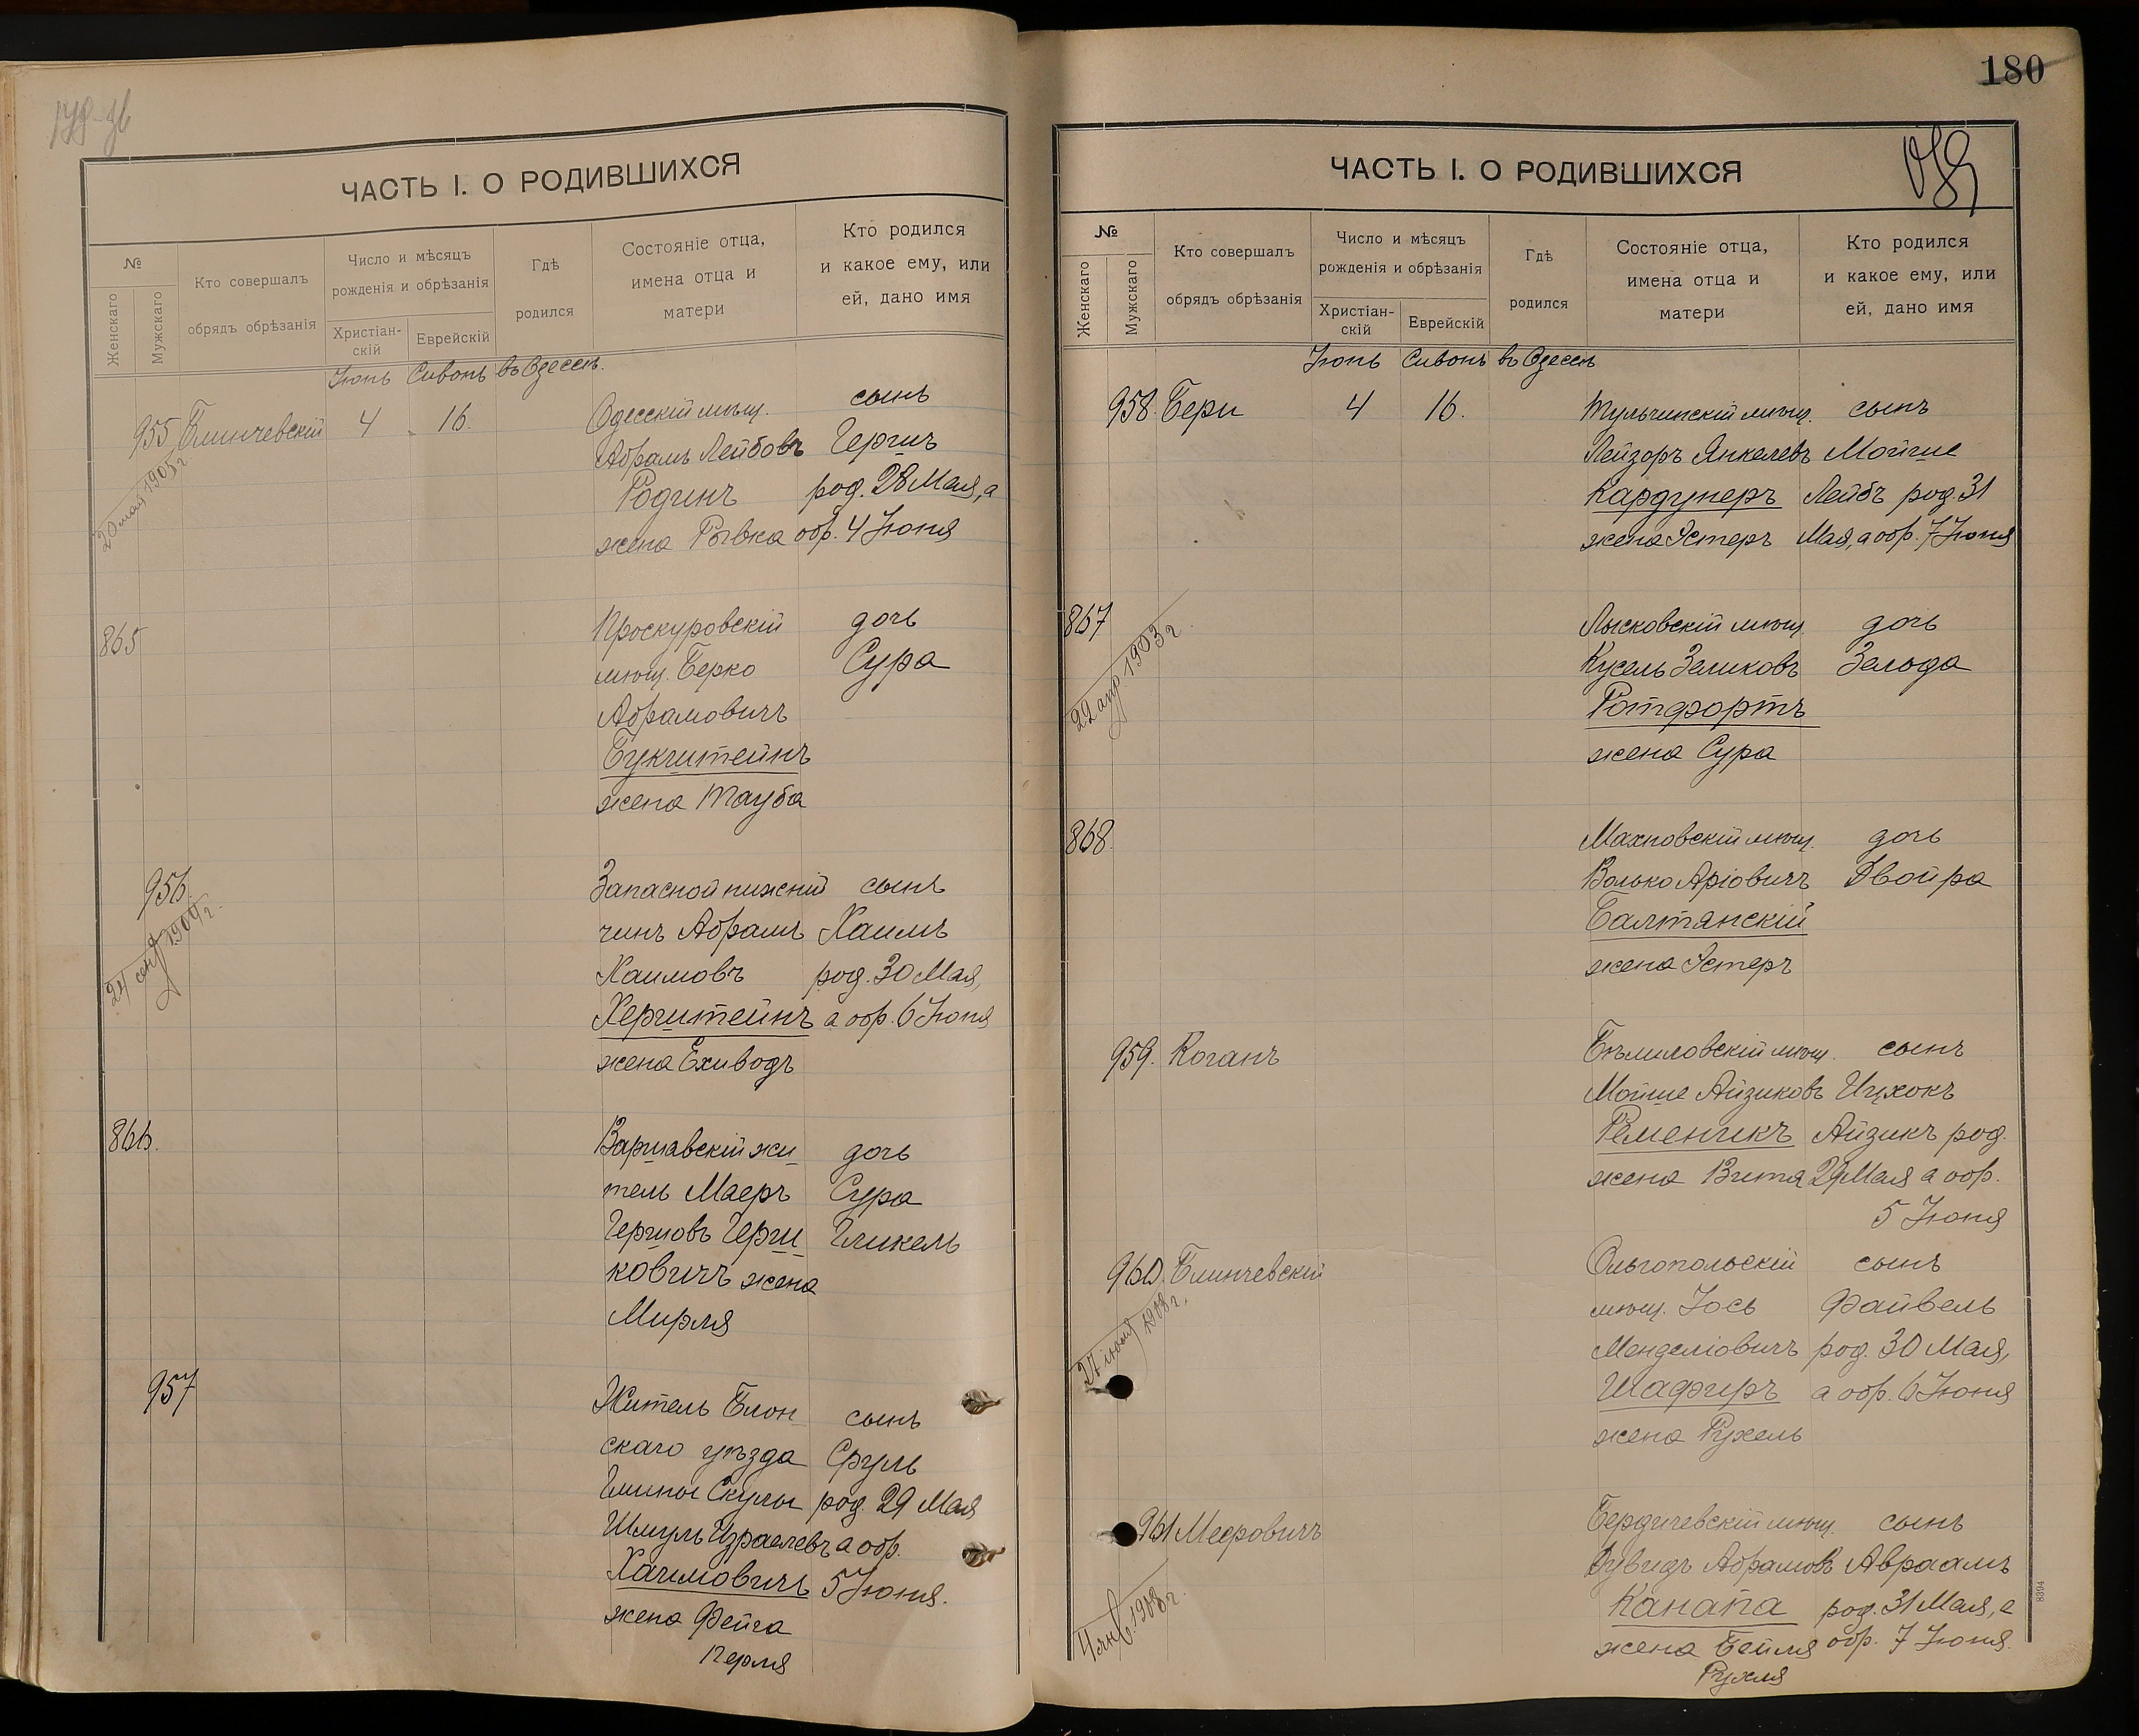 ЧАСТЬ I. О РОДИВШИХСЯ
№
Женскаго
Мужскаго
Кто совершалъ
обрядъ обрѣзанія
Число и мѣсяцъ
рожденія и обрѣзанія
Христіан-
скій
Еврейскій
Гдѣ
родился
Состояніе отца,
имена отца и
матери
Кто родился
и какое ему, или
ей, дано имя
Іюнь Сивонъ въ Одессѣ.
955 Блинчевскій 4 16. Одесскій мѣщ. сынъ
Абрамъ Лейбовъ Гершъ
Родинъ род. 28 Мая, а
жена Ривка обр. 4 Іюня
20 мая 1903 г
865 Проскуровскій дочь
мѣщ. Берко Сура
Абрамовичъ
Букштейнъ
жена Тауба
956. Запасной нижній сынъ
чинъ Абрамъ Хаимъ
Хаимовъ род. 30 Мая,
Херштейнъ а обр. 6 Іюня
жена Ехиводъ
866. Варшавскій жи дочь
тель Маеръ Сура
Гершовъ Герш Гликель
ковичъ жена
Мирля
957 Житель Блон сынъ
скаго уѣзда Сруль
Гмины Скулы род. 29 Мая
Шмуль Израелевъ а обр.
Хаимовичъ 5 Іюня.
жена Фейга
Перля
180
ЧАСТЬ I. О РОДИВШИХСЯ
№
Женскаго
Мужскаго
Кто совершалъ
обрядъ обрѣзанія
Число и мѣсяцъ
рожденія и обрѣзанія
Христіан-
скій
Еврейскій
Гдѣ
родился
Состояніе отца,
имена отца и
матери
Кто родился
и какое ему, или
ей, дано имя
Іюнь Сивонъ въ Одессѣ
958. Бери 4 16. Тульчинскій мѣщ. сынъ
Лейзоръ Янкелевъ Мойше
Кардунеръ Лейбъ род. 31
жена Эстеръ Мая, а обр. 7 Іюня
867 Лысковскій мѣщ. дочь
Кусель Зеликовъ Зелода
Ротфортъ
жена Сура
22 апр 1903 г.
868. Махновскій мѣщ. дочь
Волько Аріовичъ Двойра
Балтянскій
жена Эстеръ
959. Коганъ Бѣлиловскій мѣщ. сынъ
Мойше Айзиковъ Ицхокъ
Ременикъ Айзикъ род.
жена Витя 29 Мая а обр.
5 Іюня
960. Блинчевскій Ольгопольскій сынъ
мѣщ. Іось Файвель
Менделіовичъ род. 30 Мая,
Шафиръ а обр. 6 Іюня
жена Рухель
27 1908 г.
961 Мееровичъ Бердичевскій мѣщ. сынъ
Абрамовъ Авраамъ
Канапа род. 31 Мая, а
жена Бейля обр. 7 Іюня.
Рухля
4 янв. 1908 г.
8394